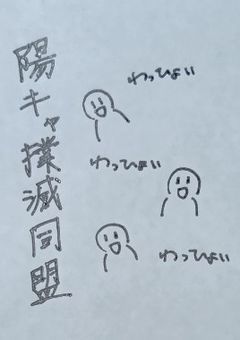 陽キャ撲滅同盟
わっひょい
わっひょい
わっひょい